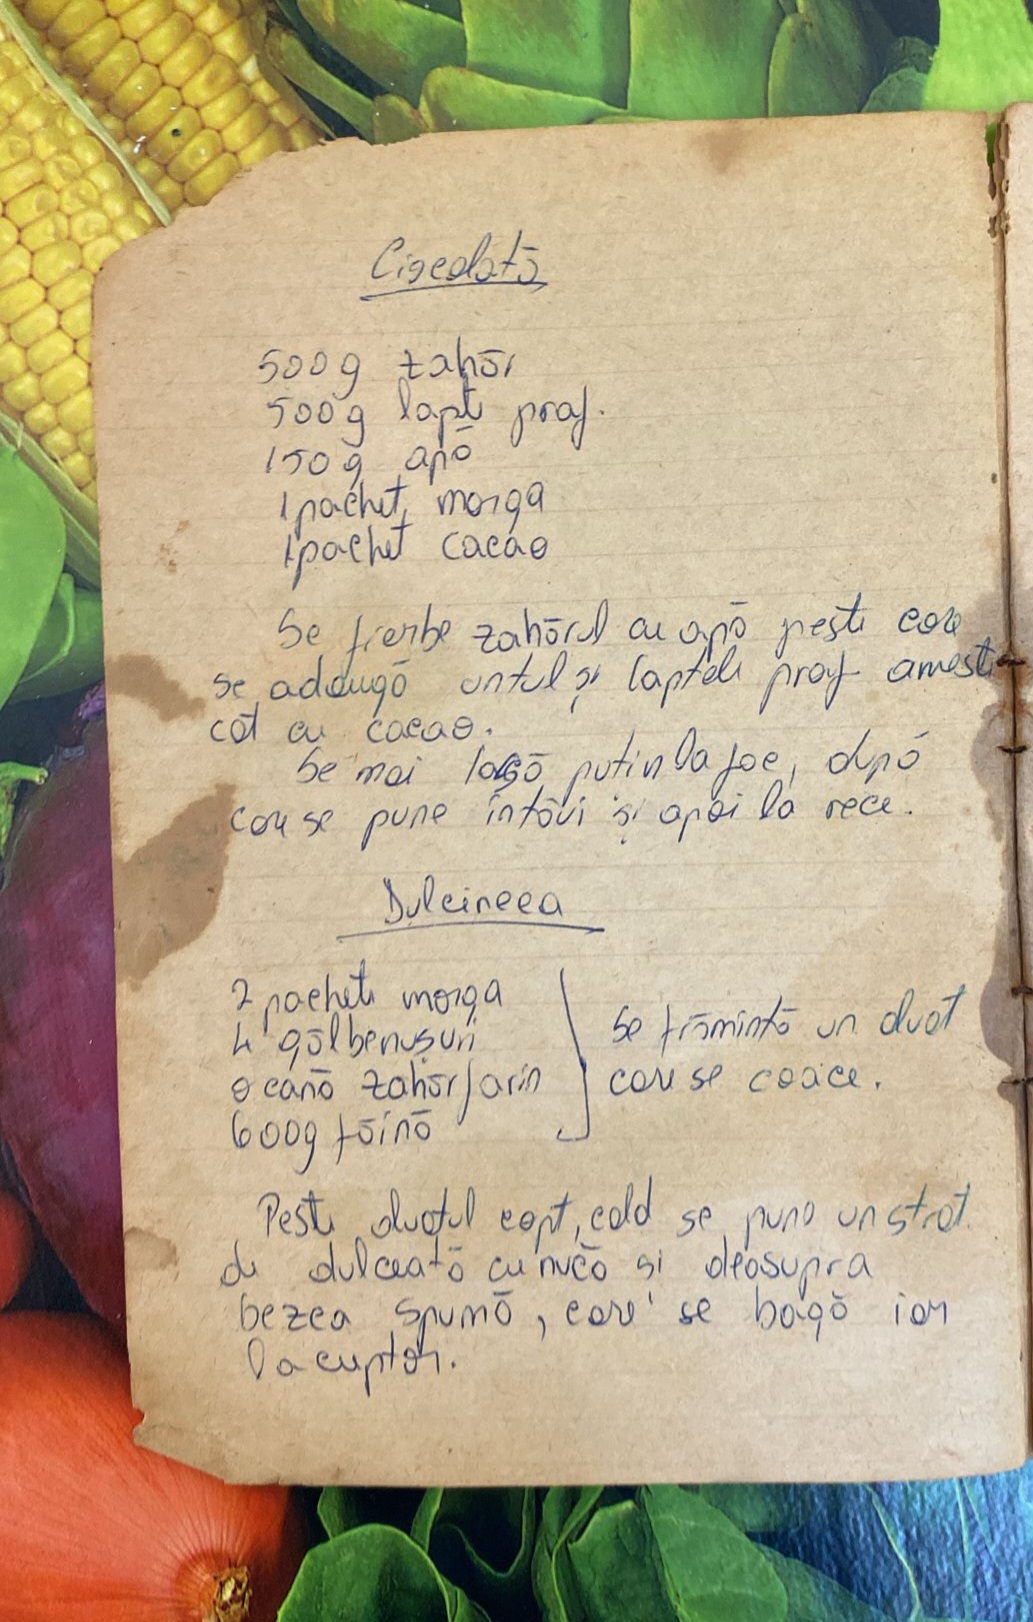 Ciocolată
500g zahăr
500g lapte praf.
150g apă
1 pachet marga
1 pachet cacao
Se fierbe zahărul cu apă peste care
se adaugă untul și laptele praf ameste
cat cu cacao.
Se mai lasă puțin la foc, după
care se pune în tăvi și apoi la rece.
Dulcineea
2 pachete marga
4 gălbenușuri
o cană zahăr farin
600g făină
se frămîntă un aluat
care se coace.
Peste aluatul copt, cald se pune un strat
de dulceată cu nucă si deasupra
bezea spumă, care se bagă iar
la cuptor.